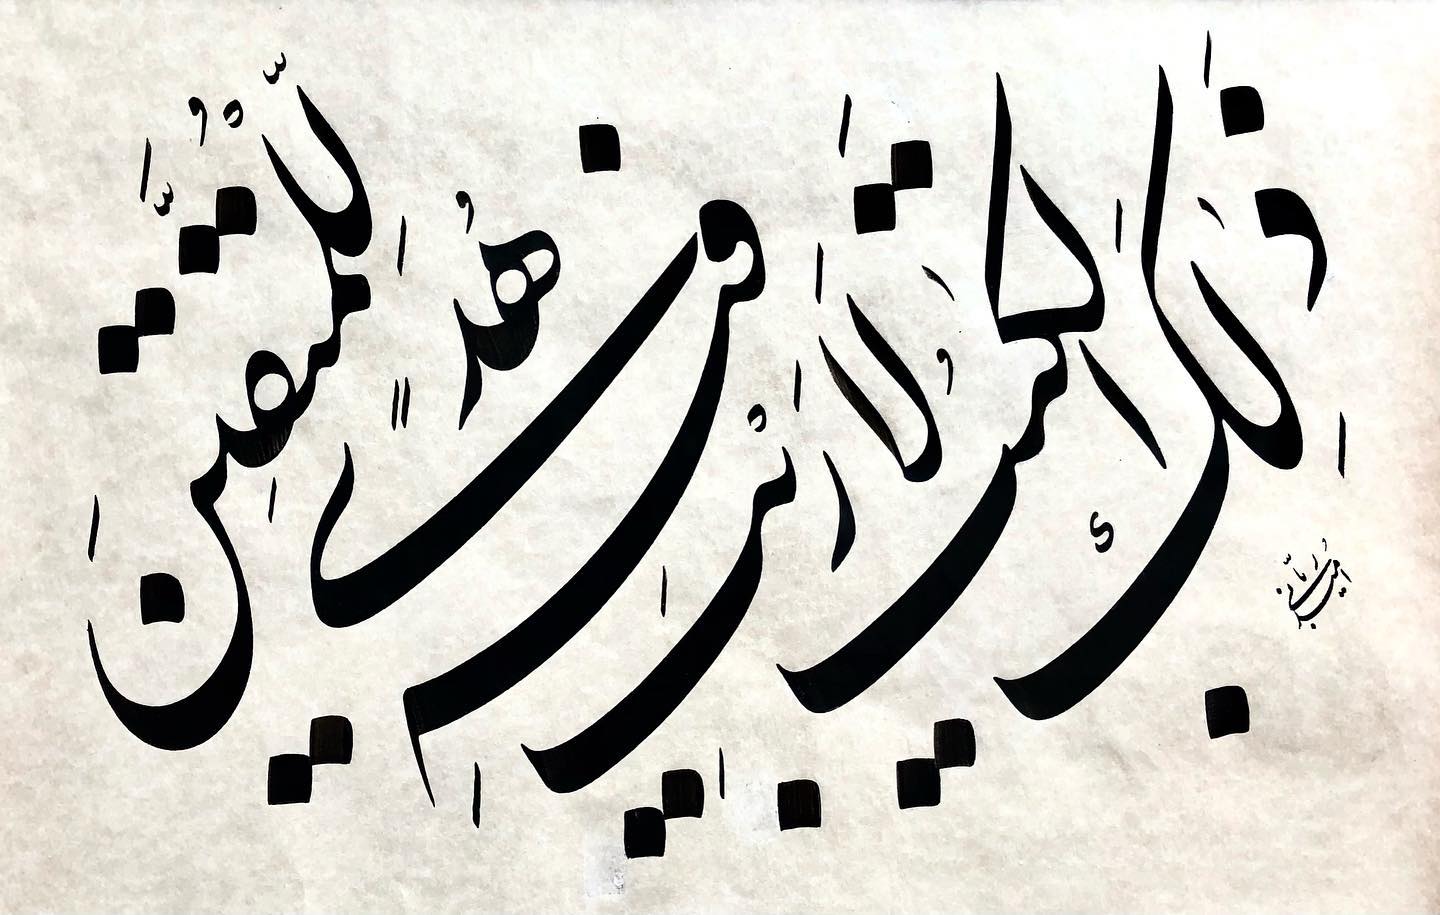 ذَٰلِكَ الْكِتَٰبُ لَا رَيْبَ فِيهِ هُدًى لِّلْمُتَّقِينَ